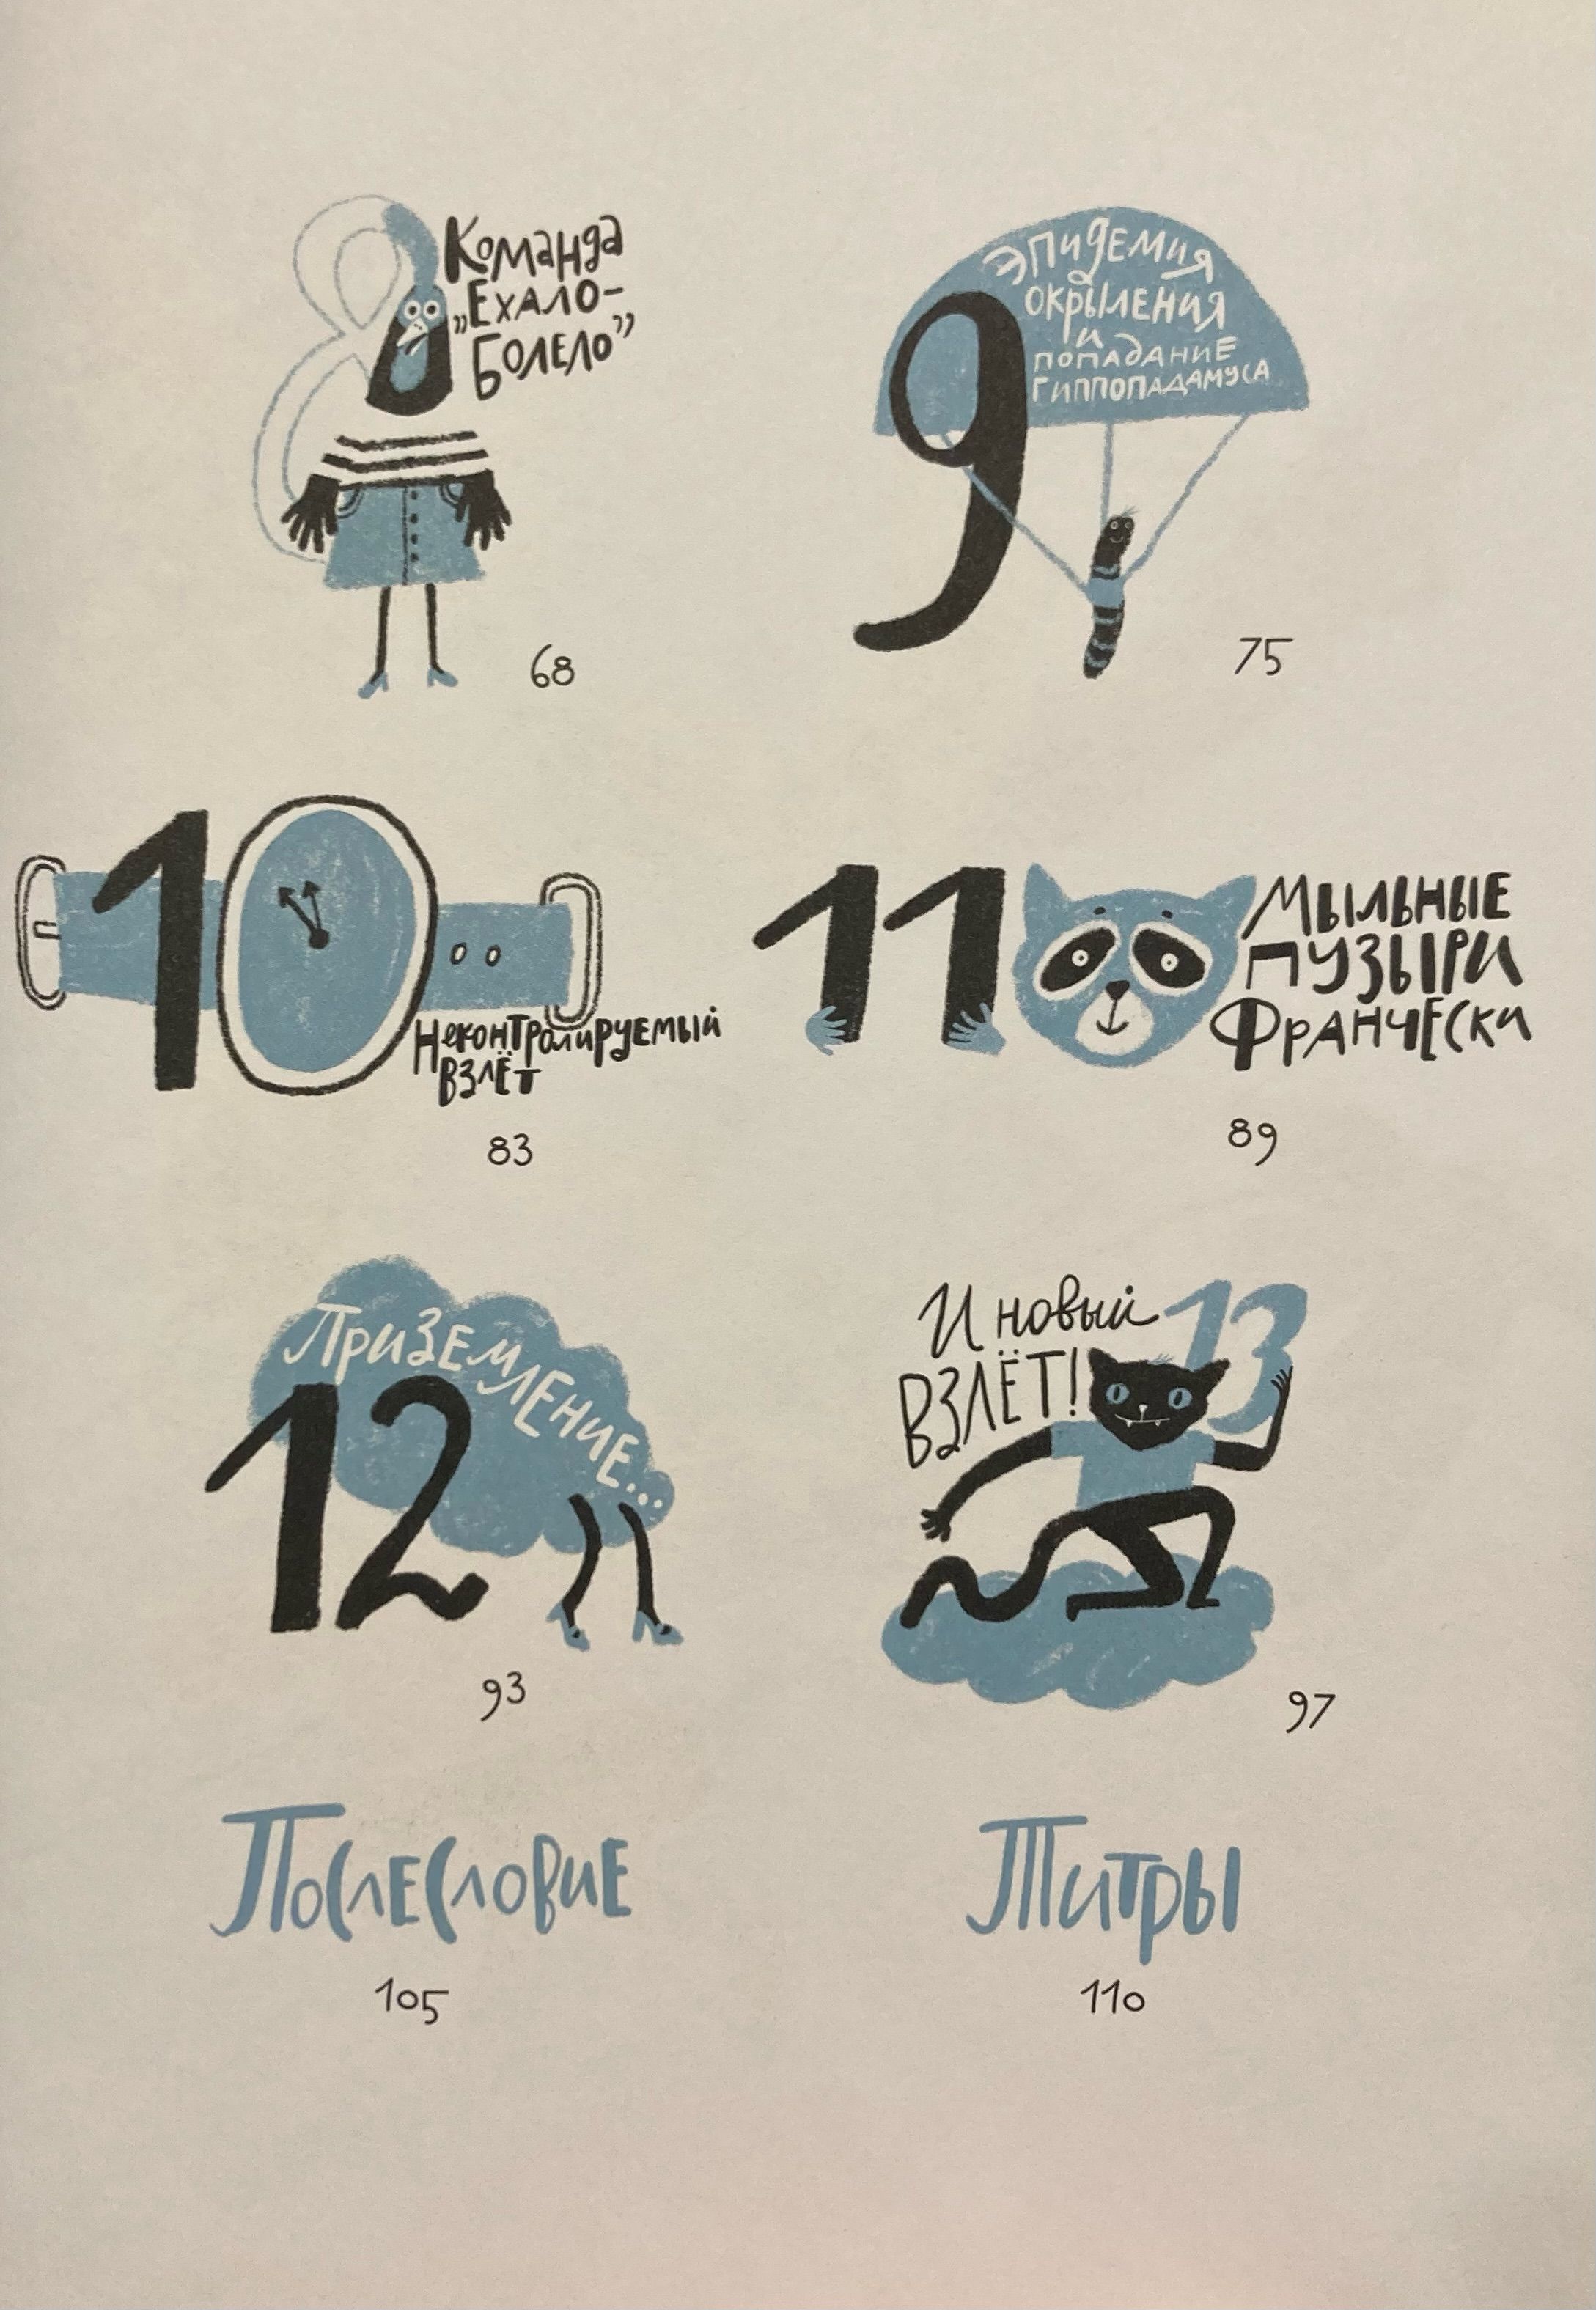 8
Команда
„Ехало-
Болело”
68
9
Эпидемия
окрыления
и
попадание
гиппопадамуса
75
10
Неконтролируемый
взлёт
83
11
Мыльные
пузыри
Франчески
89
12
Приземление...
93
13
И новый
взлёт!
97
Послесловие
105
Титры
110